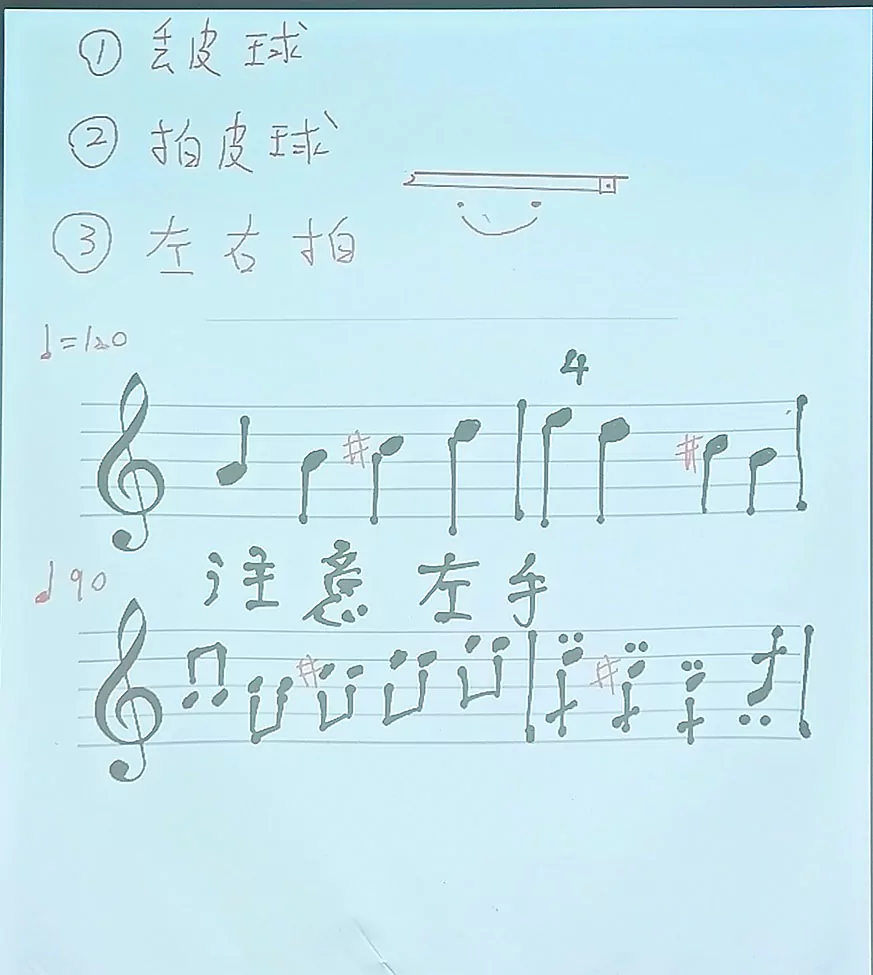 ① 丢皮球
② 拍皮球
③ 左右拍
♩=120
4
♩90
注意左手